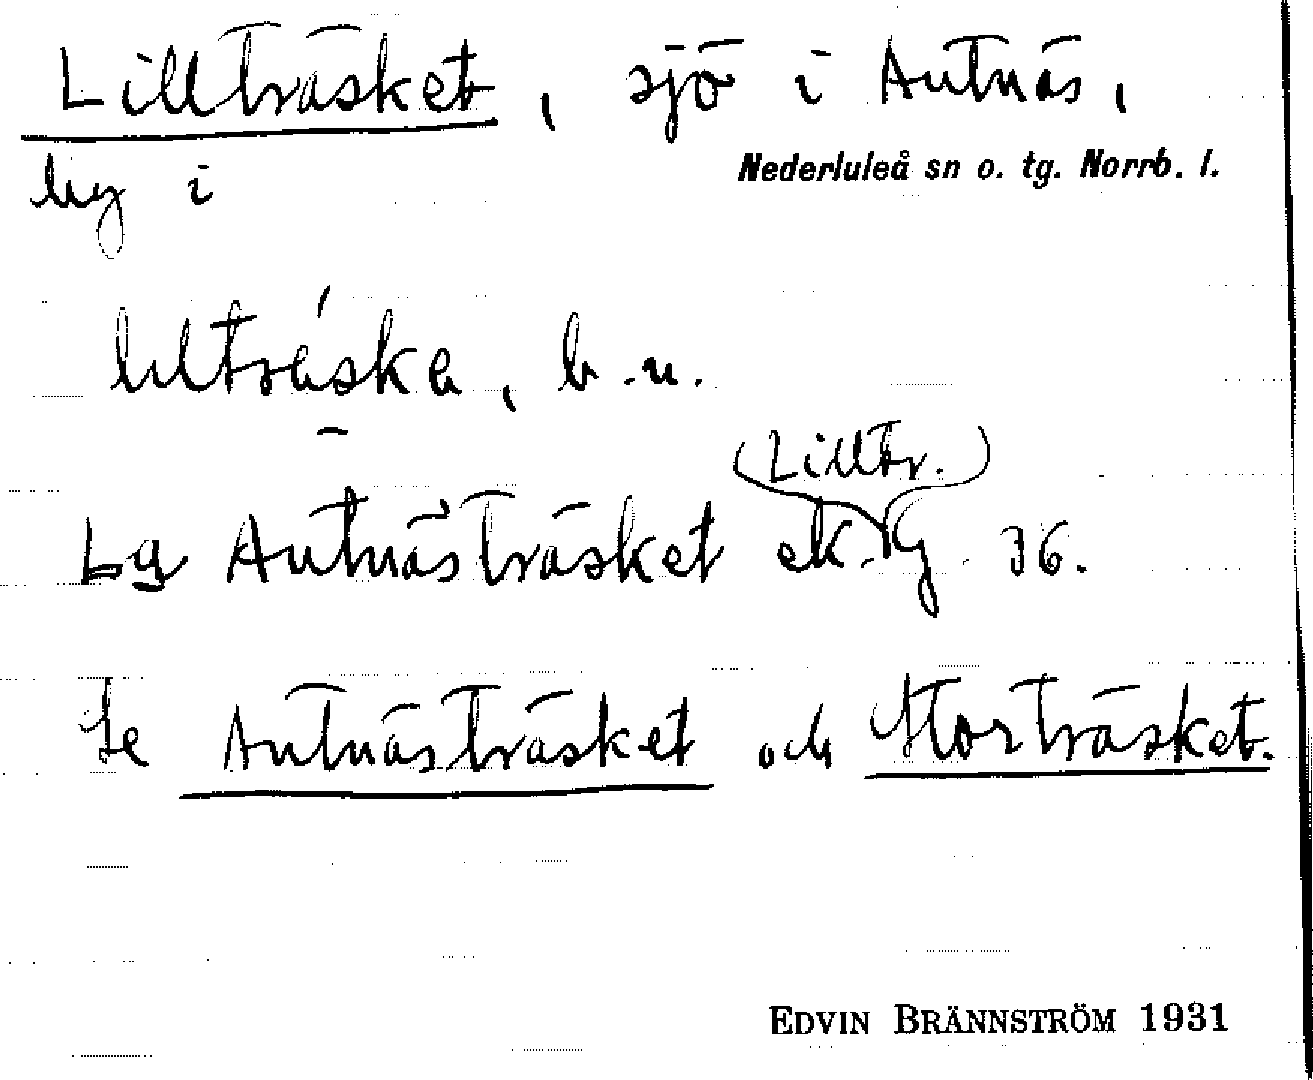 Lillträsket, sjö i Antnäs,
by i Nederluleå sn o. tg. Norrb. l.
liltrèska, b.n.
(Lilltr.)
Lg Antnästräsket ek. G 36.
Se Antnästräsket och Storträsket.
EDVIN BRÄNNSTRÖM 1931